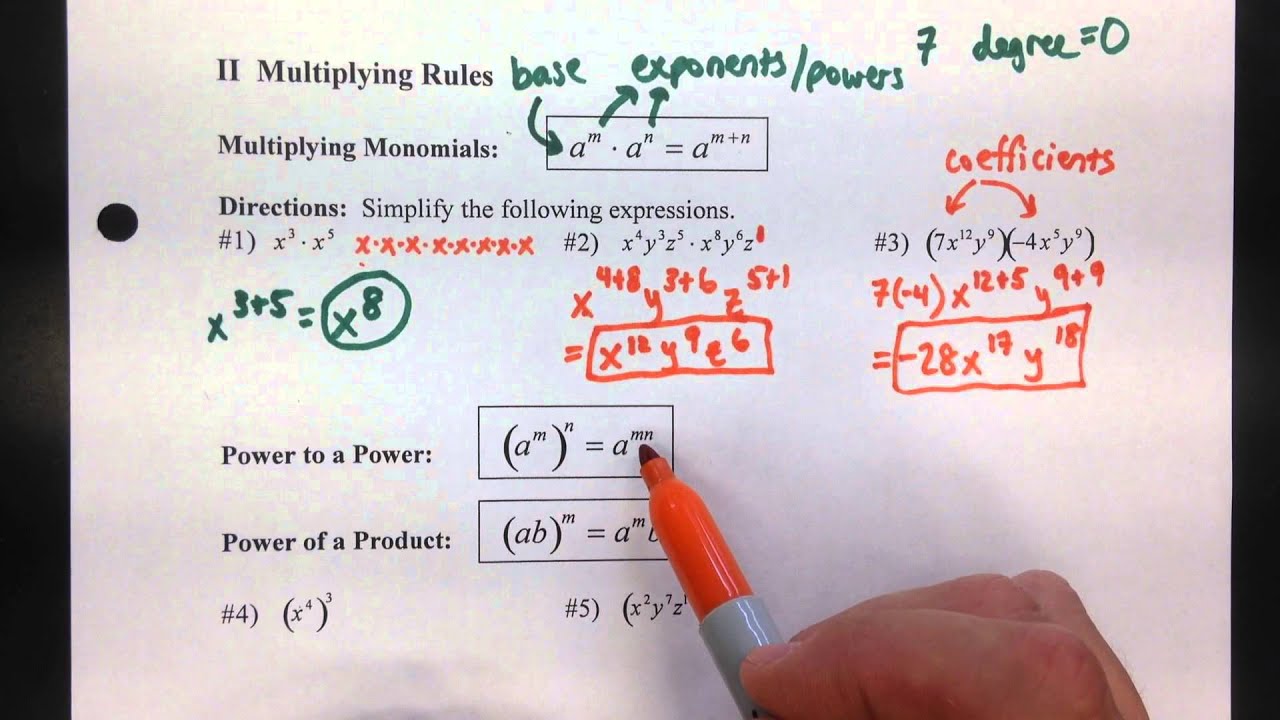 7 degree=0
II Multiplying Rules base exponents/powers
Multiplying Monomials: aᵐ · aⁿ = aᵐ⁺ⁿ
coefficients
Directions: Simplify the following expressions.
#1) x³ · x⁵ x·x·x·x·x·x·x·x
#2) x⁴y³z⁵ · x⁸y⁶z¹
#3) (7x¹²y⁹)(−4x⁵y⁹)
x³⁺⁵ = x⁸
x⁴⁺⁸y³⁺⁶z⁵⁺¹
= x¹²y⁹z⁶
7(-4)x¹²⁺⁵y⁹⁺⁹
= -28x¹⁷y¹⁸
Power to a Power: (aᵐ)ⁿ = aᵐⁿ
Power of a Product: (ab)ᵐ = aᵐ
#4) (x⁴)³
#5) (x²y⁷z